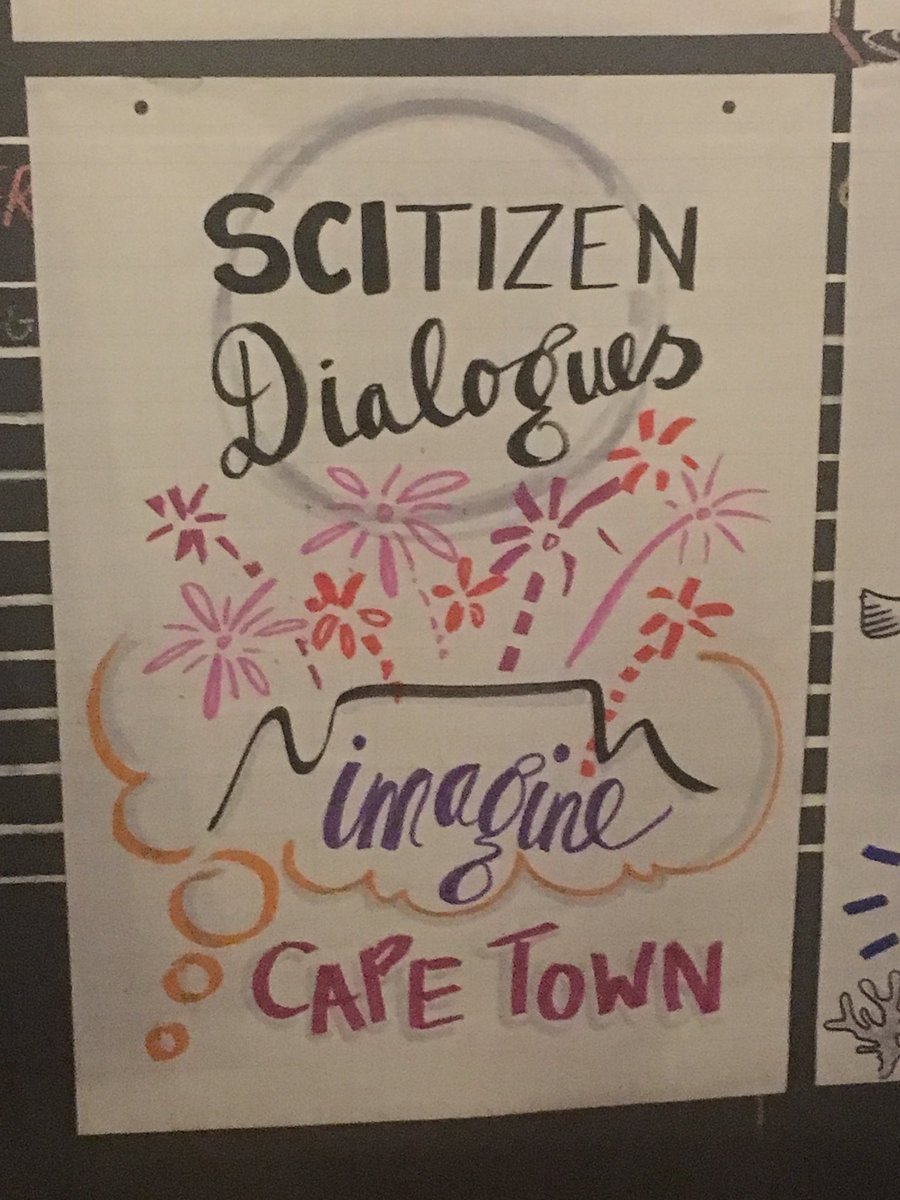 SCITIZEN
Dialogues
imagine
CAPE TOWN